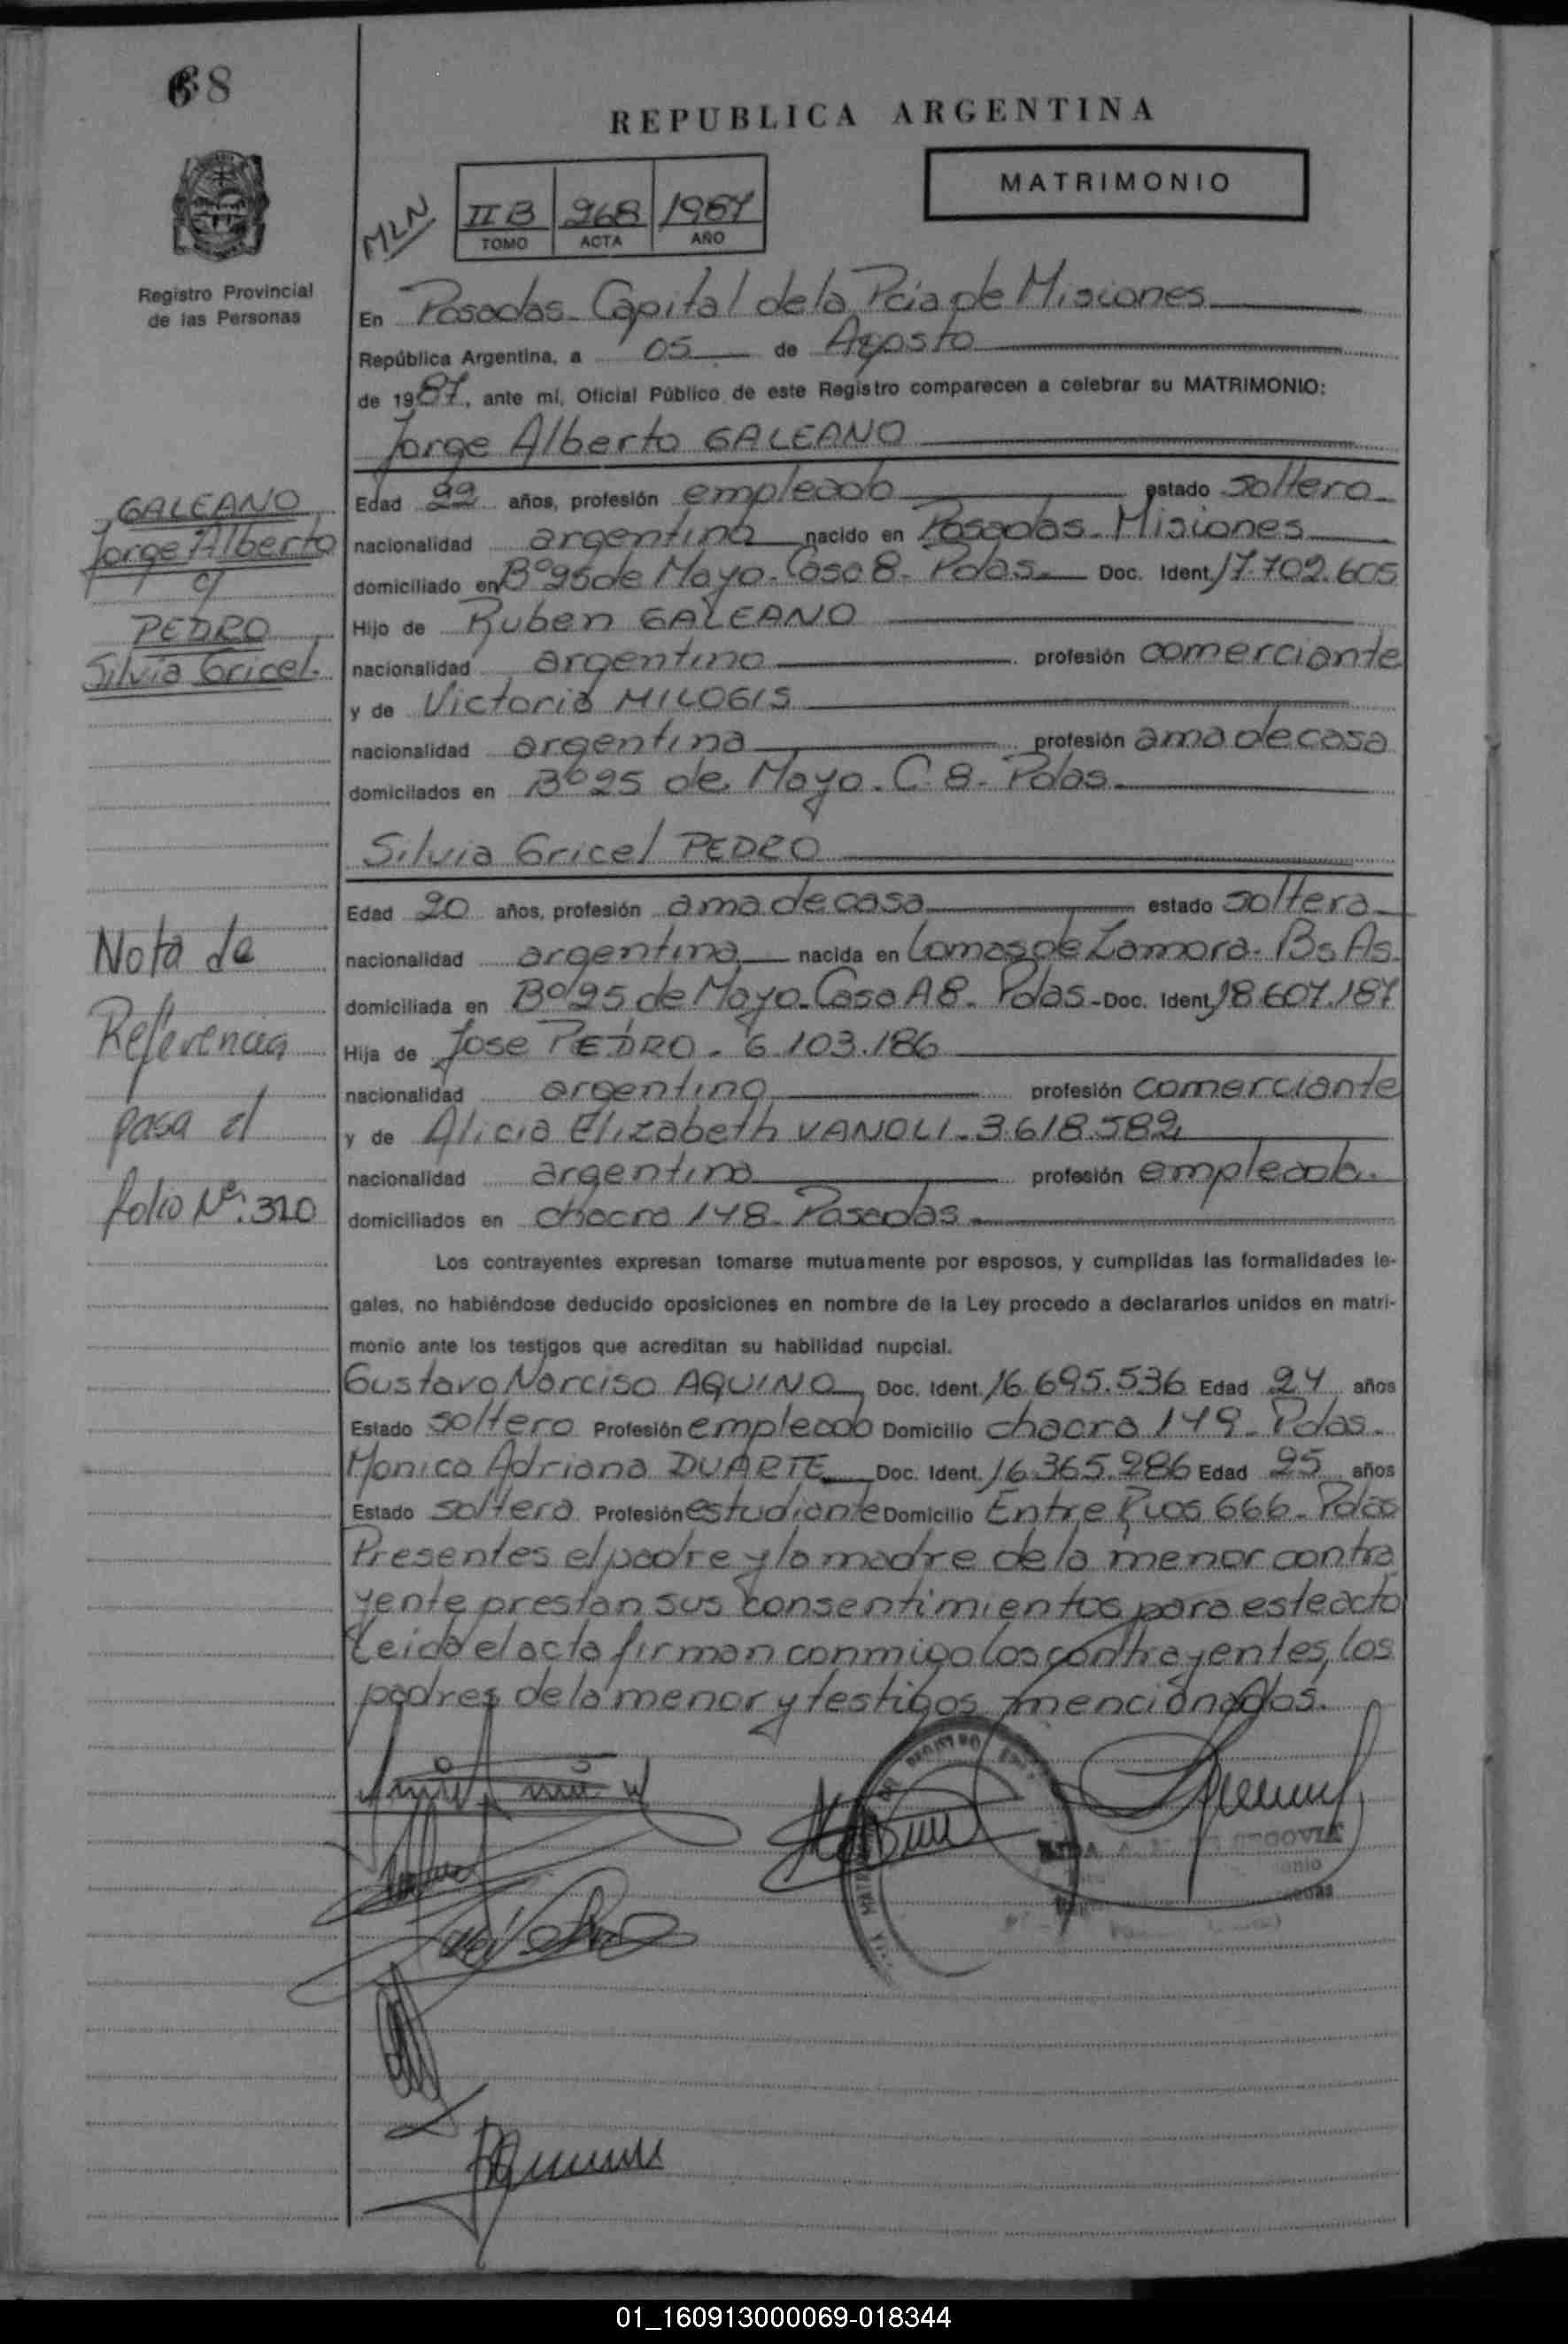 68
REPUBLICA ARGENTINA
MATRIMONIO
MLN
II B 268 1987
TOMO ACTA AÑO
Registro Provincial
de las Personas
En Posadas - Capital de la Pcia de Misiones
República Argentina, a 05 de Agosto
de 1987, ante mí, Oficial Público de este Registro comparecen a celebrar su MATRIMONIO:
Jorge Alberto GALEANO
GALEANO
Jorge Alberto
y
PEDRO
Silvia Gricel.
Edad 22 años, profesión empleado estado soltero
nacionalidad argentina nacido en Posadas - Misiones
domiciliado en Bº 25 de Mayo - Casa 8 - Pdas. Doc. Ident. 17.702.605
Hijo de Ruben GALEANO
nacionalidad argentino profesión comerciante
y de Victoria MILOGIS
nacionalidad argentina profesión ama de casa
domiciliados en Bº 25 de Mayo - C. 8 - Pdas.
Silvia Gricel PEDRO
Edad 20 años, profesión ama de casa estado soltera
nacionalidad argentina nacida en Lomas de Zamora - Bs As.
domiciliada en Bº 25 de Mayo - Casa A 8 - Pdas - Doc. Ident. 18.607.187
Hija de Jose PEDRO - 6.103.186
nacionalidad argentino profesión comerciante
y de Alicia Elizabeth VANOLI - 3.618.582
nacionalidad argentina profesión empleada.
domiciliados en chacra 148 - Posadas
Nota de
Referencia
pasa al
folio Nº 320
Los contrayentes expresan tomarse mutuamente por esposos, y cumplidas las formalidades le-
gales, no habiéndose deducido oposiciones en nombre de la Ley procedo a declararlos unidos en matri-
monio ante los testigos que acreditan su habilidad nupcial.
Gustavo Narciso AQUINO Doc. Ident. 16.695.536 Edad 24 años
Estado soltero Profesión empleado Domicilio chacra 149 - Pdas.
Monica Adriana DUARTE Doc. Ident. 16.365.286 Edad 25 años
Estado soltera Profesión estudiante Domicilio Entre Rios 666 - Pdas
Presentes el padre y la madre de la menor contra
yente prestan sus consentimientos para este acto
Leida el acta firman conmigo los contrayentes, los
padres de la menor y testigos mencionados.
01_160913000069-018344